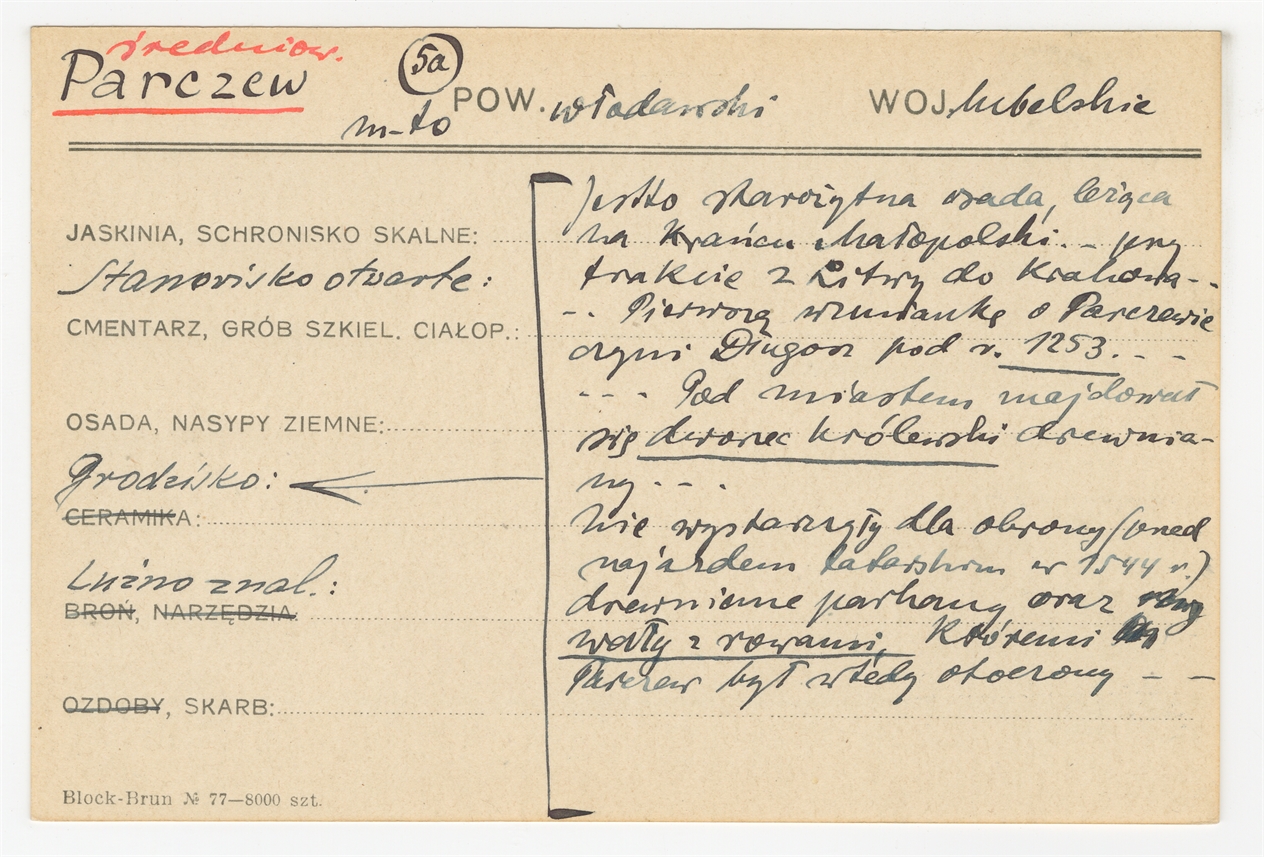 średniow.
Parczew
5a
m-to
POW. włodawski
WOJ. lubelskie
JASKINIA, SCHRONISKO SKALNE:
Stanowisko otwarte:
CMENTARZ, GRÓB SZKIEL. CIAŁOP.:
OSADA, NASYPY ZIEMNE:
Grodzisko:
CERAMIKA:
Luźno znal.:
BROŃ, NARZĘDZIA.
OZDOBY, SKARB:
Block-Brun № 77—8000 szt.
Jestto starożytna osada, leżąca
na krańcu Małopolski.- przy
trakcie z Litwy do Krakowa--
-. Pierwszą wzmiankę o Parczewie
czyni Długosz pod r. 1253.--
--- Pod miastem znajdował
się dworzec królewski drewnia-
ny---
Nie wystarczyły dla obrony (przed
najazdem tatarskim w 1544 r.)
drewniane parkany oraz
wały z rowami, któremi
Parczew był wtedy otoczony --